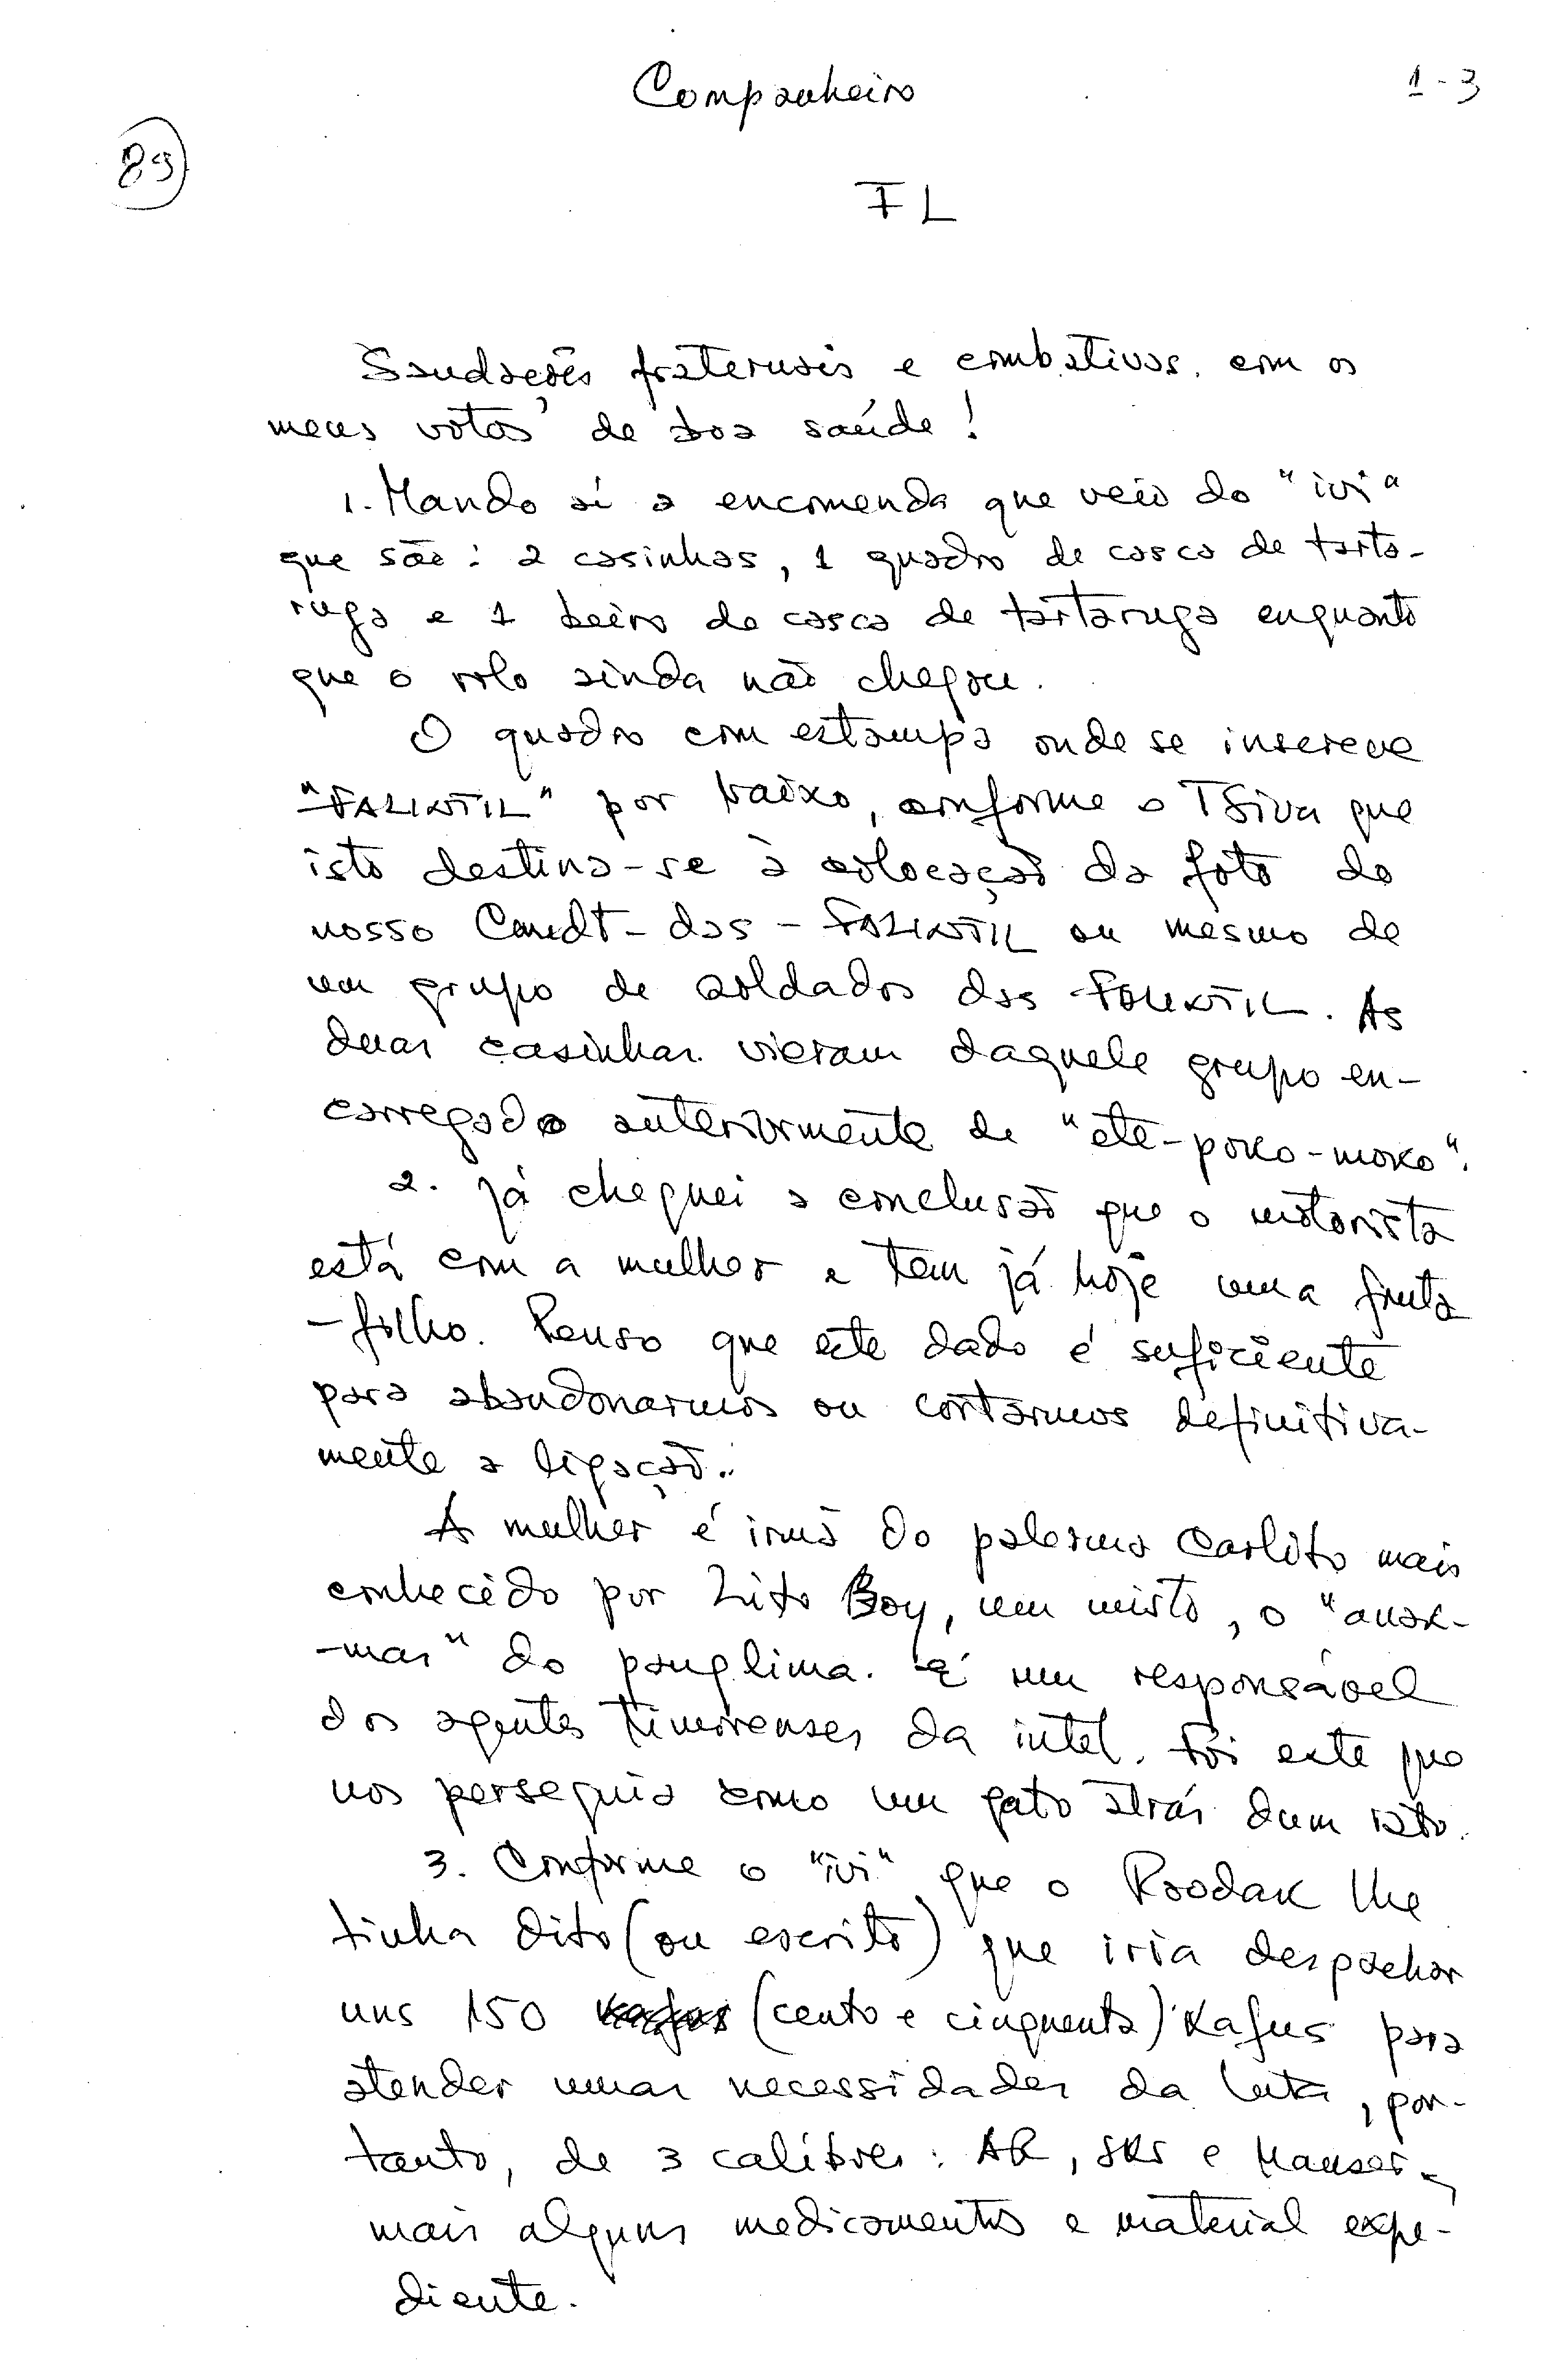 Companheiro
1-3
89
FL
Saudações fraternais e combativas, com os
meus votos de boa saúde!
1. Mando aí a encomenda que veio do "ivi"
que são: 2 casinhas, 1 quadro de casco de tarta-
ruga e 1 de casca de tartaruga enquanto
que o rolo ainda não chegou.
O quadro com estampa onde se inscreve
"FALINTIL" por baixo, conforme o que
isto destina-se à colocação da foto do
nosso Comdt-das-FALINTIL ou mesmo de
um grupo de soldados das FALINTIL. As
duas casinhas vieram daquele grupo en-
carregado anteriormente de "ete-poko-moko".
2. Já cheguei a conclusão que o motorista
está com a mulher e tem já hoje uma fruta
-filho. Penso que este dado é suficiente
para abandonarmos ou cortarmos definitiva-
mente a ligação.
A mulher é irmã do palerma Carlito mais
conhecido por Lito Boy, um misto, o "anak-
-mas" do panglima. É um responsável
dos agentes timorenses da intel. Foi este que
nos perseguia como um gato atrás dum rato.
3. Conforme o "ivi" que o Roodak lhe
tinha dito (ou escrito) que iria despachar
uns 150 (cento e cinquenta) kafus para
atender umas necessidades da luta, por-
tanto, de 3 calibres: AR, SKS e Mauser,
mais alguns medicamentos e material expe-
diente.